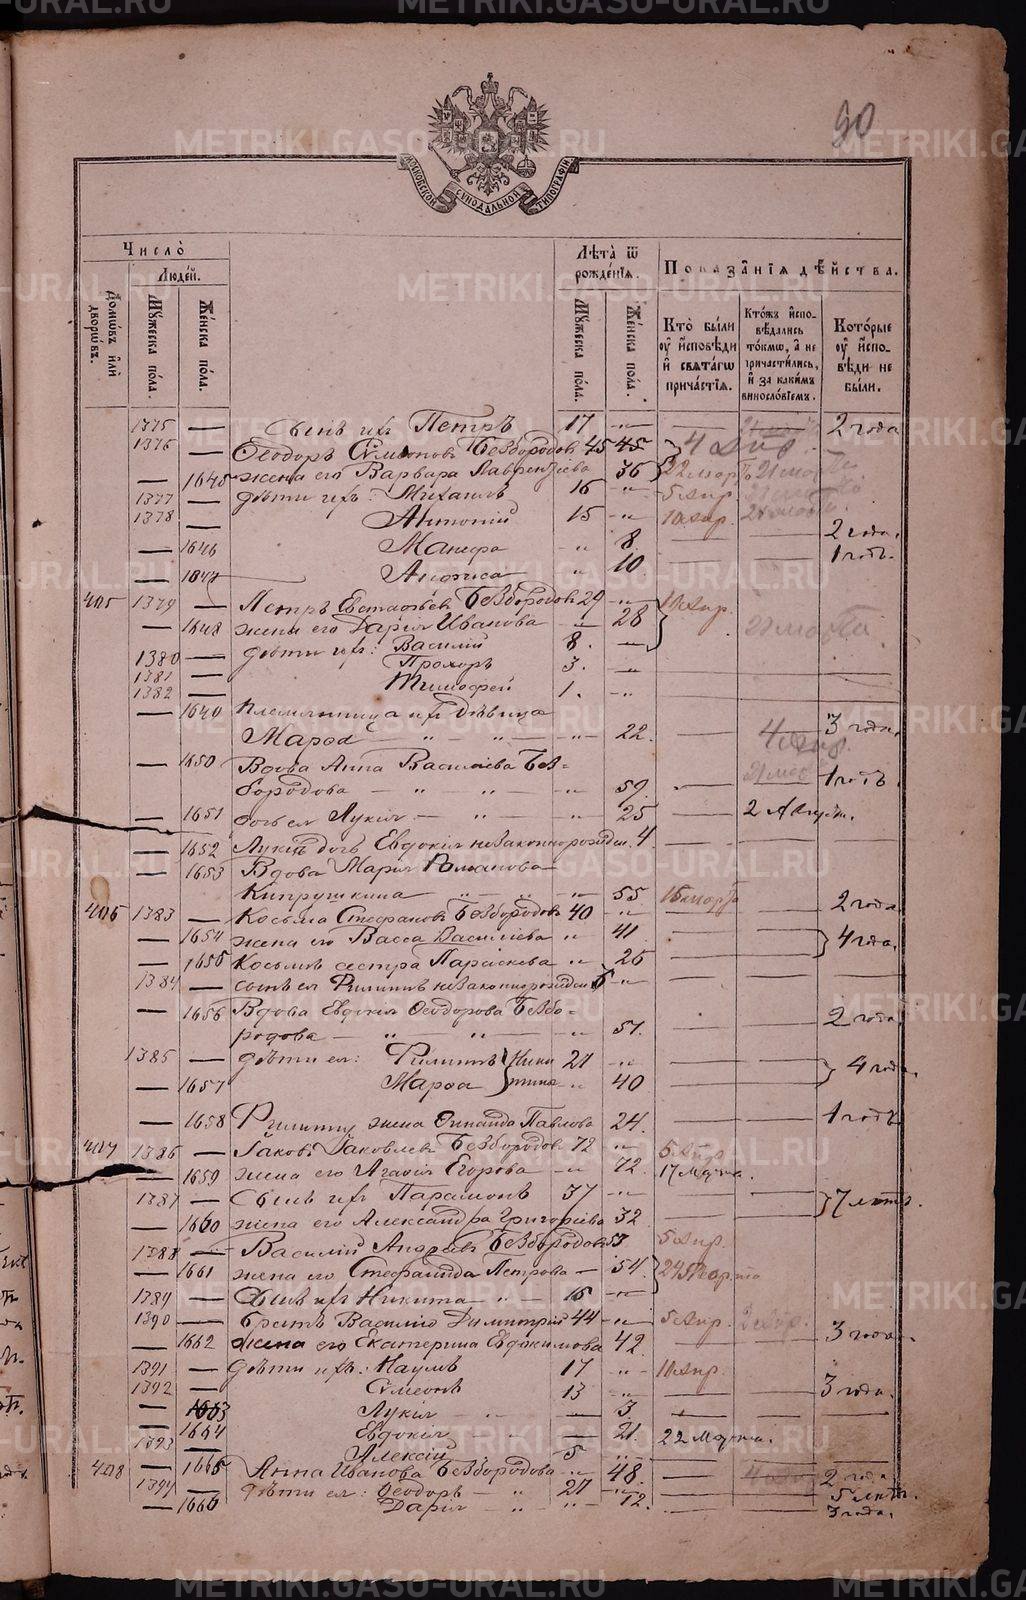 90
МОСКОВСКОЙ СѴНОДАЛЬНОЙ ТИПОГРАФІИ
Число̀
Людей.
Домѡвъ и҆лѝ дворѡвъ.
Мꙋжеска пола.
Женска пола.
Лѣта̀ ѿ рожденїѧ.
Мꙋжеска пола.
Женска пола.
Показанїѧ дѣйства.
Кто̀ были ᲂу҆ и҆сповѣди и҆ свѧтагѡ причастїѧ.
Ктожъ и҆сповѣдались токмѡ, а҆ не причастились, и҆ за какимъ винословїемъ.
Которые ᲂу҆ и҆сповѣди не были.
1375 — Сынъ ихъ Петръ 17 2 года
1376 Ѳеодоръ Сѵмеоновъ Безбородовъ 45 45
— 1645 жена его Варвара Лаврентіева 36
1377 — дѣти ихъ: Михаилъ 16 5 Апр.
1378 — Антоній 15 10 Апр.
— 1646 Манефа 8 2 года.
— 1647 Анѳиса 10 1 годъ.
405 1379 — Петръ Евстаѳіевъ Безбородовъ 29 10 Апр.
— 1648 жена его Дарія Иванова 28
1380 — дѣти ихъ: Василій 8
1381 — Прохоръ 3.
1382 — Тимофей 1.
— 1649 Племянница ихъ дѣвица
Марѳа 22. 3 года.
— 1650 Вдова Анна Васильева Без-
бородова 59. 1 годъ
— 1651 дочь ея Лукія 25 2 Август.
— 1652 Лукіи дочь Евдокія незаконнорожден. 4
— 1653 Вдова Марія Романова
Кипрушкина 55 16 марта
406 1383 — Косьма Стефановъ Безбородовъ 40 2 года
— 1654 жена его Васса Василіева 41 4 года.
— 1655 Косьмы сестра Параскева 26
1384 — сынъ ея Филиппъ незаконнорожден 6
— 1656 Вдова Евдокія Ѳеодорова Безбо-
родова 51. 2 года
1385 — дѣти ея: Филиппъ Ники 21
— 1657 Марѳа тины 40 4 года.
— 1658 Филиппа жена Павлова 24. 1 годъ
407 1386 — Іаковъ Іаковлевъ Безбородовъ 72 5 Апр
— 1659 жена его Агафія Егорова 72. 17 Марта.
1387 — Сынъ ихъ Парамонъ 37 7 лѣтъ.
— 1660 жена его Александра Григоріева 32
1388 — Василій Андреевъ Безбородовъ 53 5 Апр.
— 1661 жена его Стефанида Петрова 54. 24 Марта
1389 — Сынъ ихъ Никита 16
1390 — Братъ Василія Димитрій 44 5 Апр. 3 года.
— 1662 жена его Екатерина Евдокимова 42.
1391 — дѣти ихъ: Наумъ 17 10 Апр.
1392 — Сѵмеонъ 13 3 года.
— 1663 Лукія 3.
— 1664 Евдокія 21. 22 Марта.
1393 — Алексій 5
408 — 1665 Анна Иванова Безбородова 48. 2 года
1394 — дѣти ея: Ѳеодоръ 21 5 лѣтъ.
— 1666 Дарія 12. 3 года.
METRIKI.GASO-URAL.RU